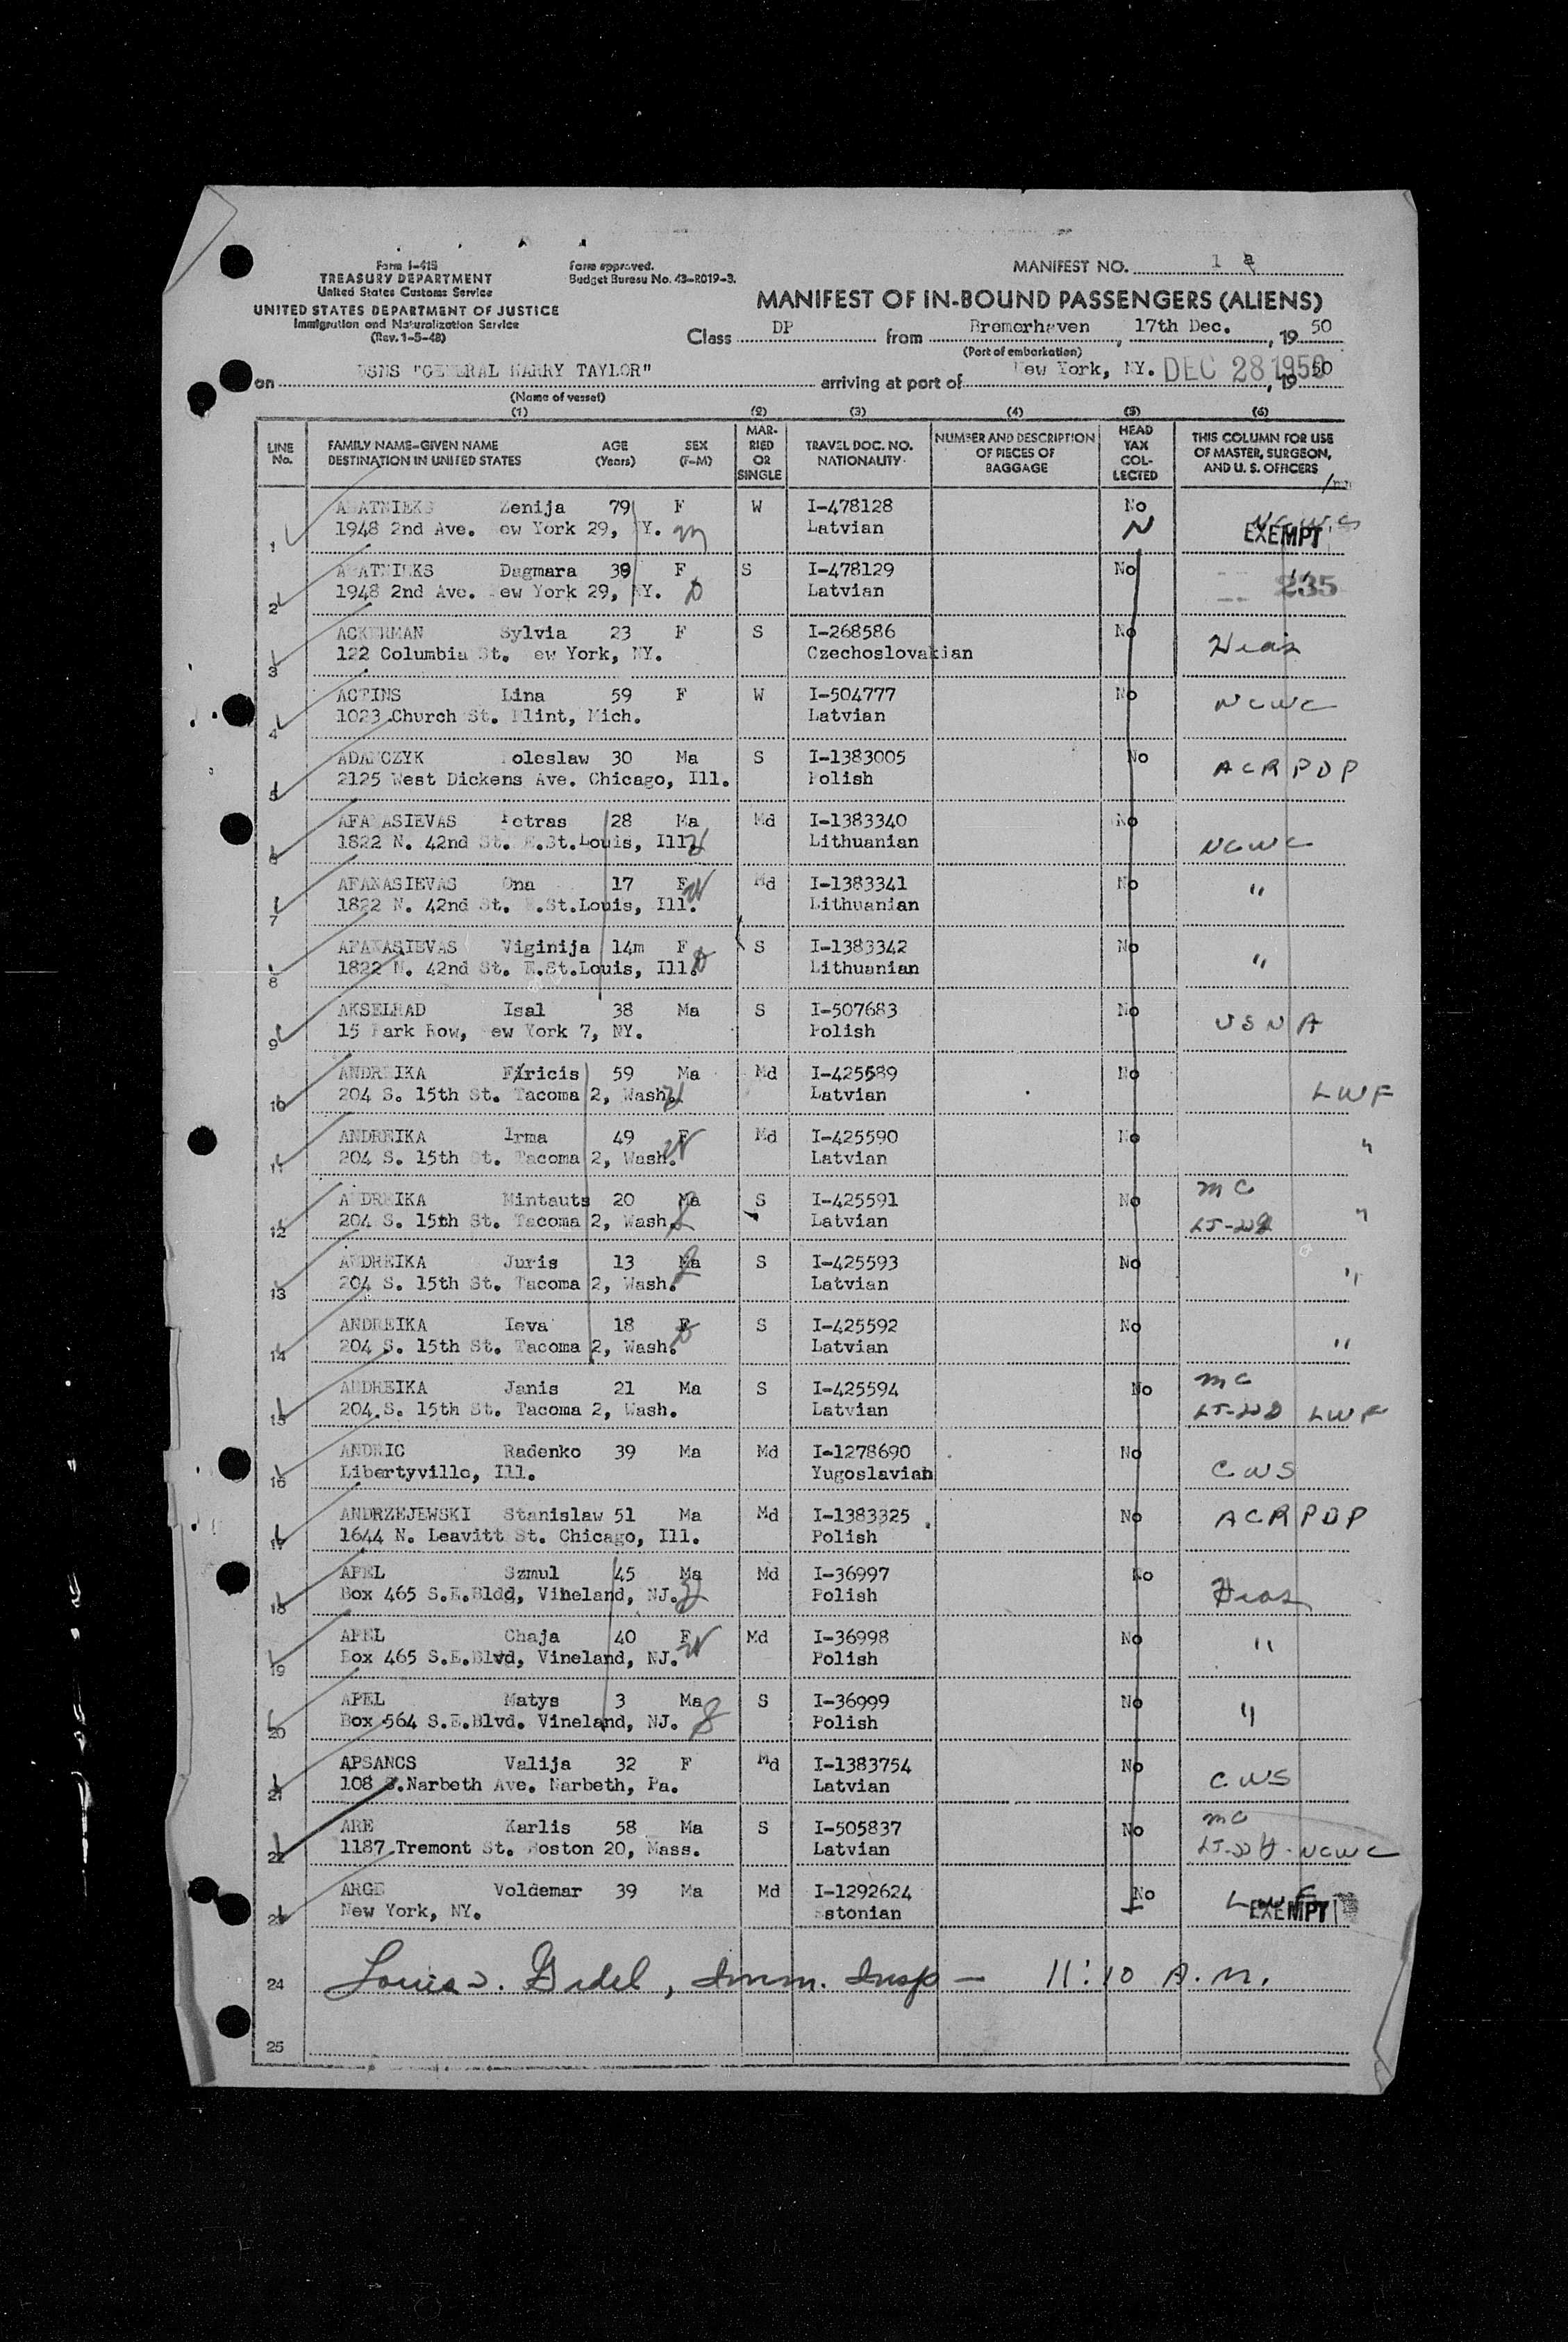 Form I-415
TREASURY DEPARTMENT
United States Customs Service
UNITED STATES DEPARTMENT OF JUSTICE
Immigration and Naturalization Service
(Rev. 1-5-48)
Form approved.
Budget Bureau No. 43-R019-3.
MANIFEST NO. 1
MANIFEST OF IN-BOUND PASSENGERS (ALIENS)
Class DP from Bremerhaven, 17th Dec., 19 50
(Port of embarkation)
on USNS "GENERAL HARRY TAYLOR" arriving at port of New York, NY. DEC 28 1950, 19 50
(Name of vessel)
(1) (2) (3) (4) (5) (6)
LINE No.
FAMILY NAME—GIVEN NAME AGE SEX
DESTINATION IN UNITED STATES (Years) (F-M)
MARRIED OR SINGLE
TRAVEL DOC. NO. NATIONALITY
NUMBER AND DESCRIPTION OF PIECES OF BAGGAGE
HEAD TAX COLLECTED
THIS COLUMN FOR USE OF MASTER, SURGEON, AND U. S. OFFICERS
1 ABATNIEKS Zenija 79 F W I-478128 No NCWC
1948 2nd Ave. New York 29, NY. m Latvian N EXEMPT
2 ABATNIEKS Dagmara 39 F S I-478129 No "
1948 2nd Ave. New York 29, NY. D Latvian 235
3 ACKERMAN Sylvia 23 F S I-268586 No Hias
122 Columbia St. New York, NY. Czechoslovakian
4 ACTINS Lina 59 F W I-504777 No NCWC
1023 Church St. Flint, Mich. Latvian
5 ADAMCZYK Boleslaw 30 Ma S I-1383005 No ACRPDP
2125 West Dickens Ave. Chicago, Ill. Polish
6 AFANASIEVAS Petras 28 Ma Md I-1383340 No NCWC
1822 N. 42nd St. E.St.Louis, Ill. H Lithuanian
7 AFANASIEVAS Ona 17 F Md I-1383341 No "
1822 N. 42nd St. E.St.Louis, Ill. W Lithuanian
8 AFANASIEVAS Viginija 14m F S I-1383342 No "
1822 N. 42nd St. E.St.Louis, Ill. D Lithuanian
9 AKSELRAD Isal 38 Ma S I-507683 No USNA
15 Park Row, New York 7, NY. Polish
10 ANDREIKA Fricis 59 Ma Md I-425589 No LWF
204 S. 15th St. Tacoma 2, Wash. H Latvian
11 ANDREIKA Irma 49 F Md I-425590 No "
204 S. 15th St. Tacoma 2, Wash. W Latvian
12 ANDREIKA Mintauts 20 Ma S I-425591 No MC "
204 S. 15th St. Tacoma 2, Wash. S Latvian
13 ANDREIKA Juris 13 Ma S I-425593 No "
204 S. 15th St. Tacoma 2, Wash. S Latvian
14 ANDREIKA Ieva 18 F S I-425592 No "
204 S. 15th St. Tacoma 2, Wash. D Latvian
15 ANDREIKA Janis 21 Ma S I-425594 No MC
204 S. 15th St. Tacoma 2, Wash. Latvian LWF
16 ANDRIC Radenko 39 Ma Md I-1278690 No CWS
Libertyville, Ill. Yugoslavian
17 ANDRZEJEWSKI Stanislaw 51 Ma Md I-1383325 No ACRPDP
1644 N. Leavitt St. Chicago, Ill. Polish
18 APEL Szmul 45 Ma Md I-36997 No Hias
Box 465 S.E.Bldd, Vineland, NJ. H Polish
19 APEL Chaja 40 F Md I-36998 No "
Box 465 S.E.Blvd, Vineland, NJ. W Polish
20 APEL Matys 3 Ma S I-36999 No "
Box 564 S.E.Blvd. Vineland, NJ. S Polish
21 APSANCS Valija 32 F Md I-1383754 No CWS
108 S.Narbeth Ave. Narbeth, Pa. Latvian
22 ARE Karlis 58 Ma S I-505837 No MC
1187 Tremont St. Boston 20, Mass. Latvian NCWC
23 ARGE Voldemar 39 Ma Md I-1292624 No LWF
New York, NY. Estonian EXEMPT
24 Louis Gidel, Imm. Insp — 11:10 A.M.
25